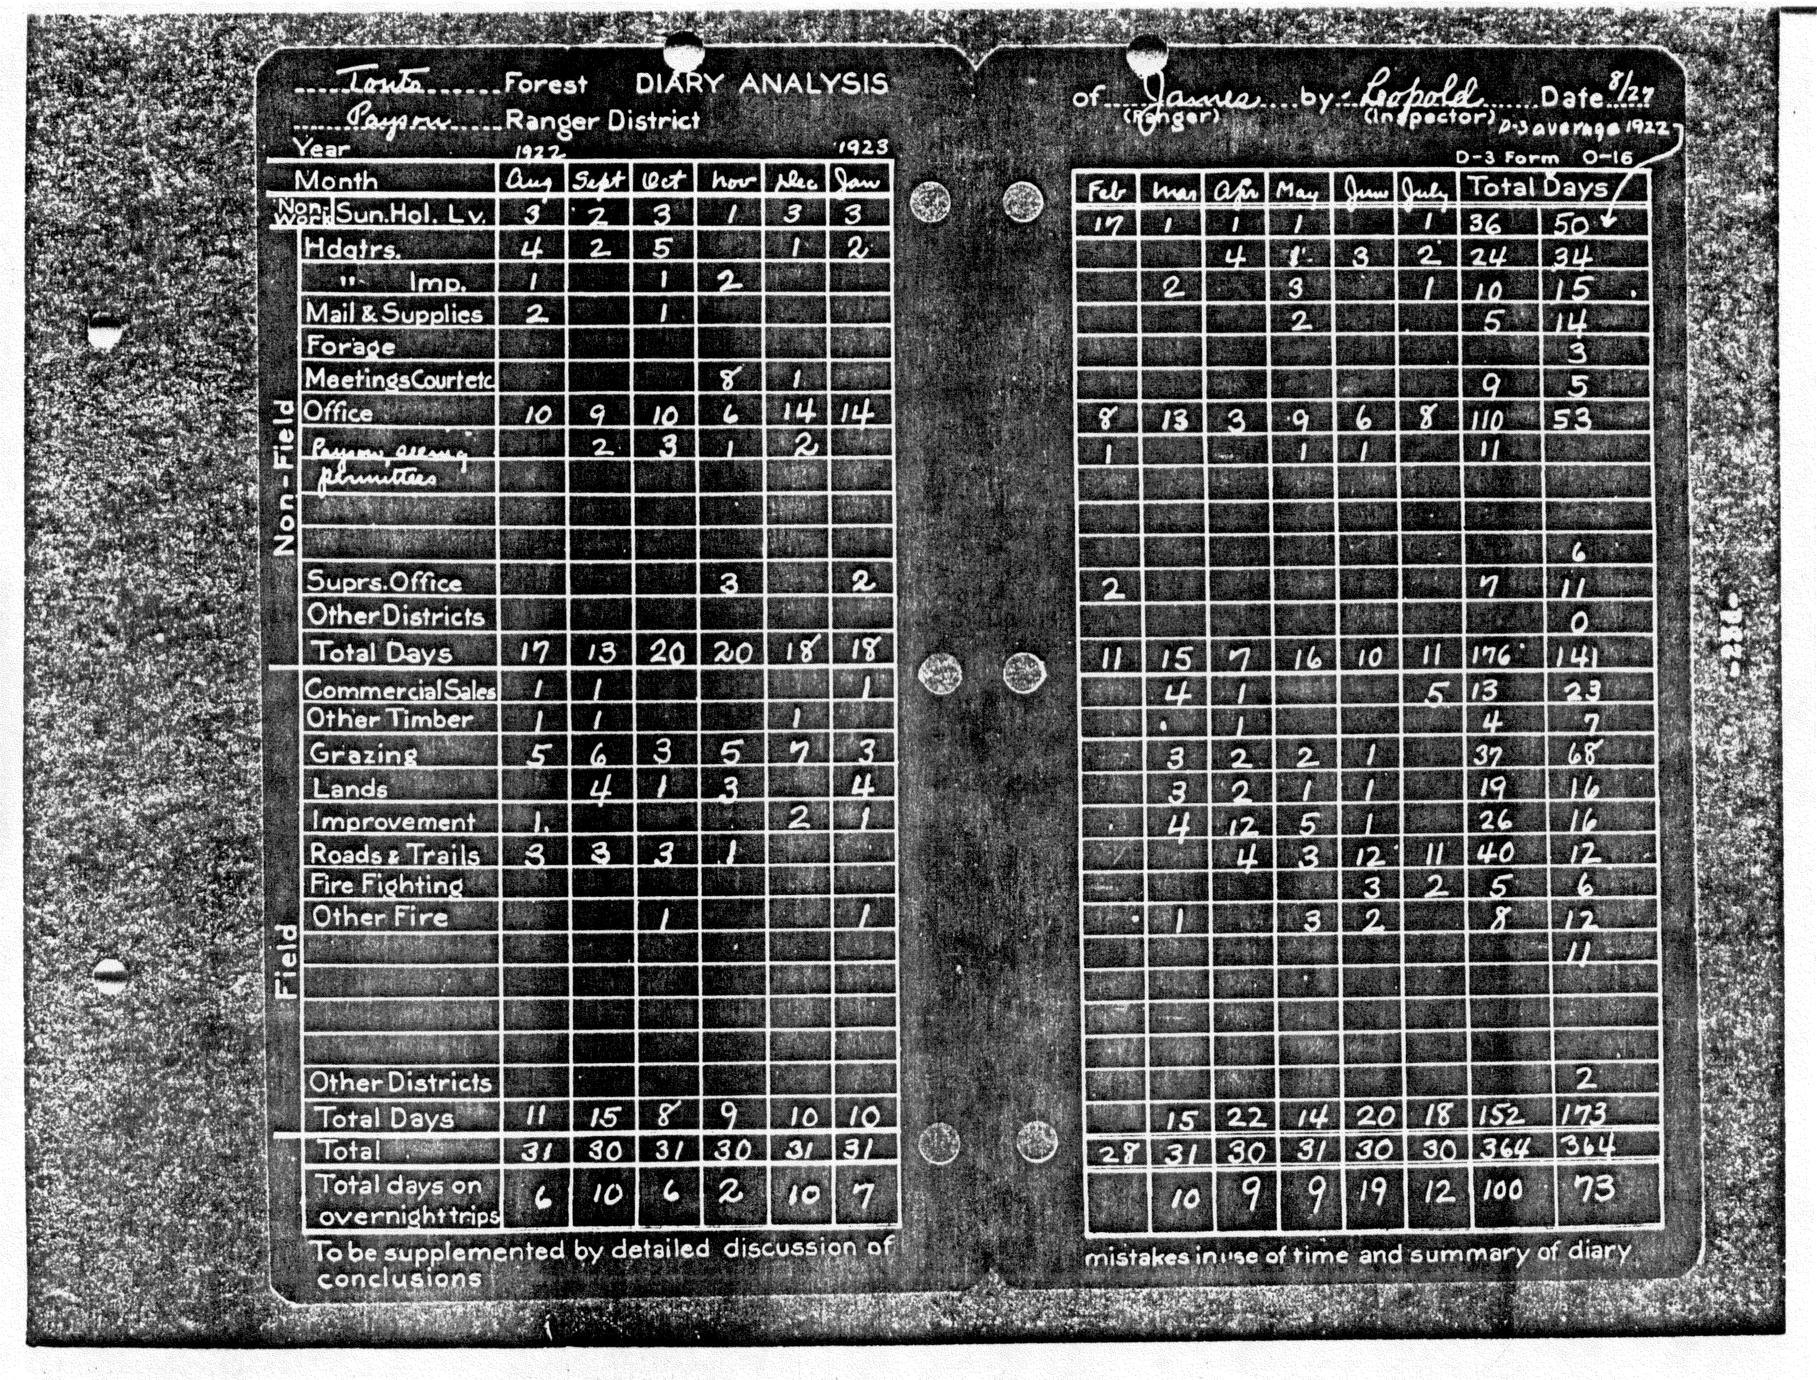 Tonto Forest DIARY ANALYSIS
Payson Ranger District
of James by Leopold Date 8/27
(Ranger) (Inspector) D-3 average 1922
D-3 Form O-16
Year 1922 1923
Month Aug Sept Oct Nov Dec Jan Feb Mar Apr May June July Total Days
Non-Work Sun. Hol. Lv. 3 2 3 1 3 3 17 1 1 1 1 36 50
Non-Field
Hdqtrs. 4 2 5 1 2 4 1 3 2 24 34
" Imp. 1 1 2 2 3 1 10 15
Mail & Supplies 2 1 2 5 14
Forage 3
Meetings Court etc 8 1 9 5
Office 10 9 10 6 14 14 8 13 3 9 6 8 110 53
Payson, seeing 2 3 1 2 1 1 1 11
permittees
6
Suprs. Office 3 2 2 7 11
Other Districts 0
Total Days 17 13 20 20 18 18 11 15 7 16 10 11 176 141
Field
Commercial Sales 1 1 1 4 1 5 13 23
Other Timber 1 1 1 1 4 7
Grazing 5 6 3 5 7 3 3 2 2 1 37 68
Lands 4 1 3 4 3 2 1 1 19 16
Improvement 1 2 1 4 12 5 1 26 16
Roads & Trails 3 3 3 1 4 3 12 11 40 12
Fire Fighting 3 2 5 6
Other Fire 1 1 1 3 2 8 12
11
Other Districts 2
Total Days 11 15 8 9 10 10 15 22 14 20 18 152 173
Total 31 30 31 30 31 31 28 31 30 31 30 30 364 364
Total days on
overnight trips 6 10 6 2 10 7 10 9 9 19 12 100 73
To be supplemented by detailed discussion of mistakes in use of time and summary of diary
conclusions